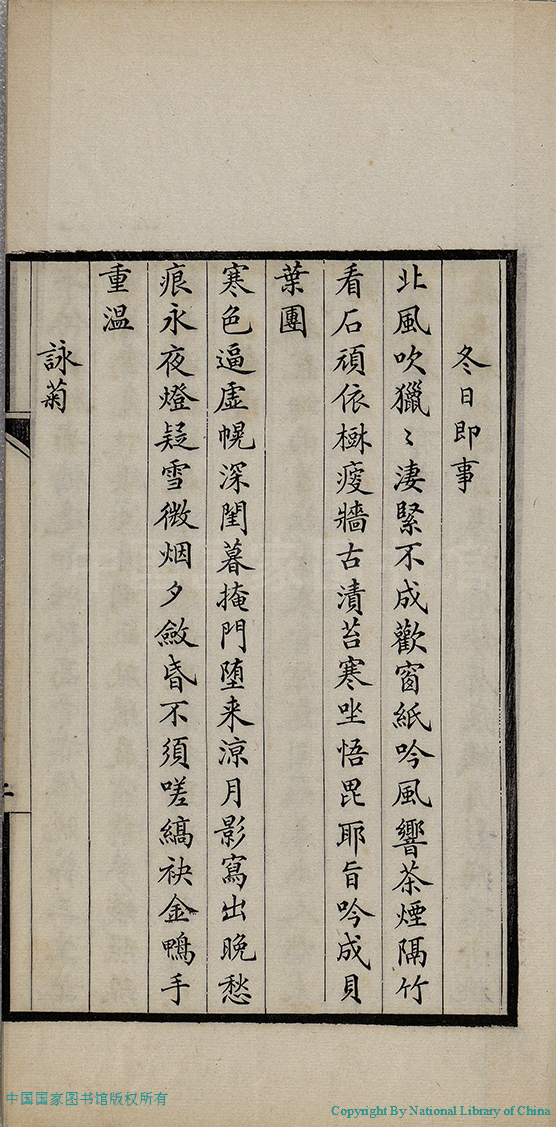 冬日即事
北風吹獵〻淒緊不成歡窗紙吟風響茶煙隔竹
看石頑依樹瘦牆古漬苔寒坐悟毘耶旨吟成貝
葉團
寒色逼虛幌深閨暮掩門墮来涼月影寫出晚愁
痕永夜燈疑雪微烟夕斂昏不須嗟縞袂金鴨手
重温
詠菊
二
中国国家图书馆版权所有
Copyright By National Library of China